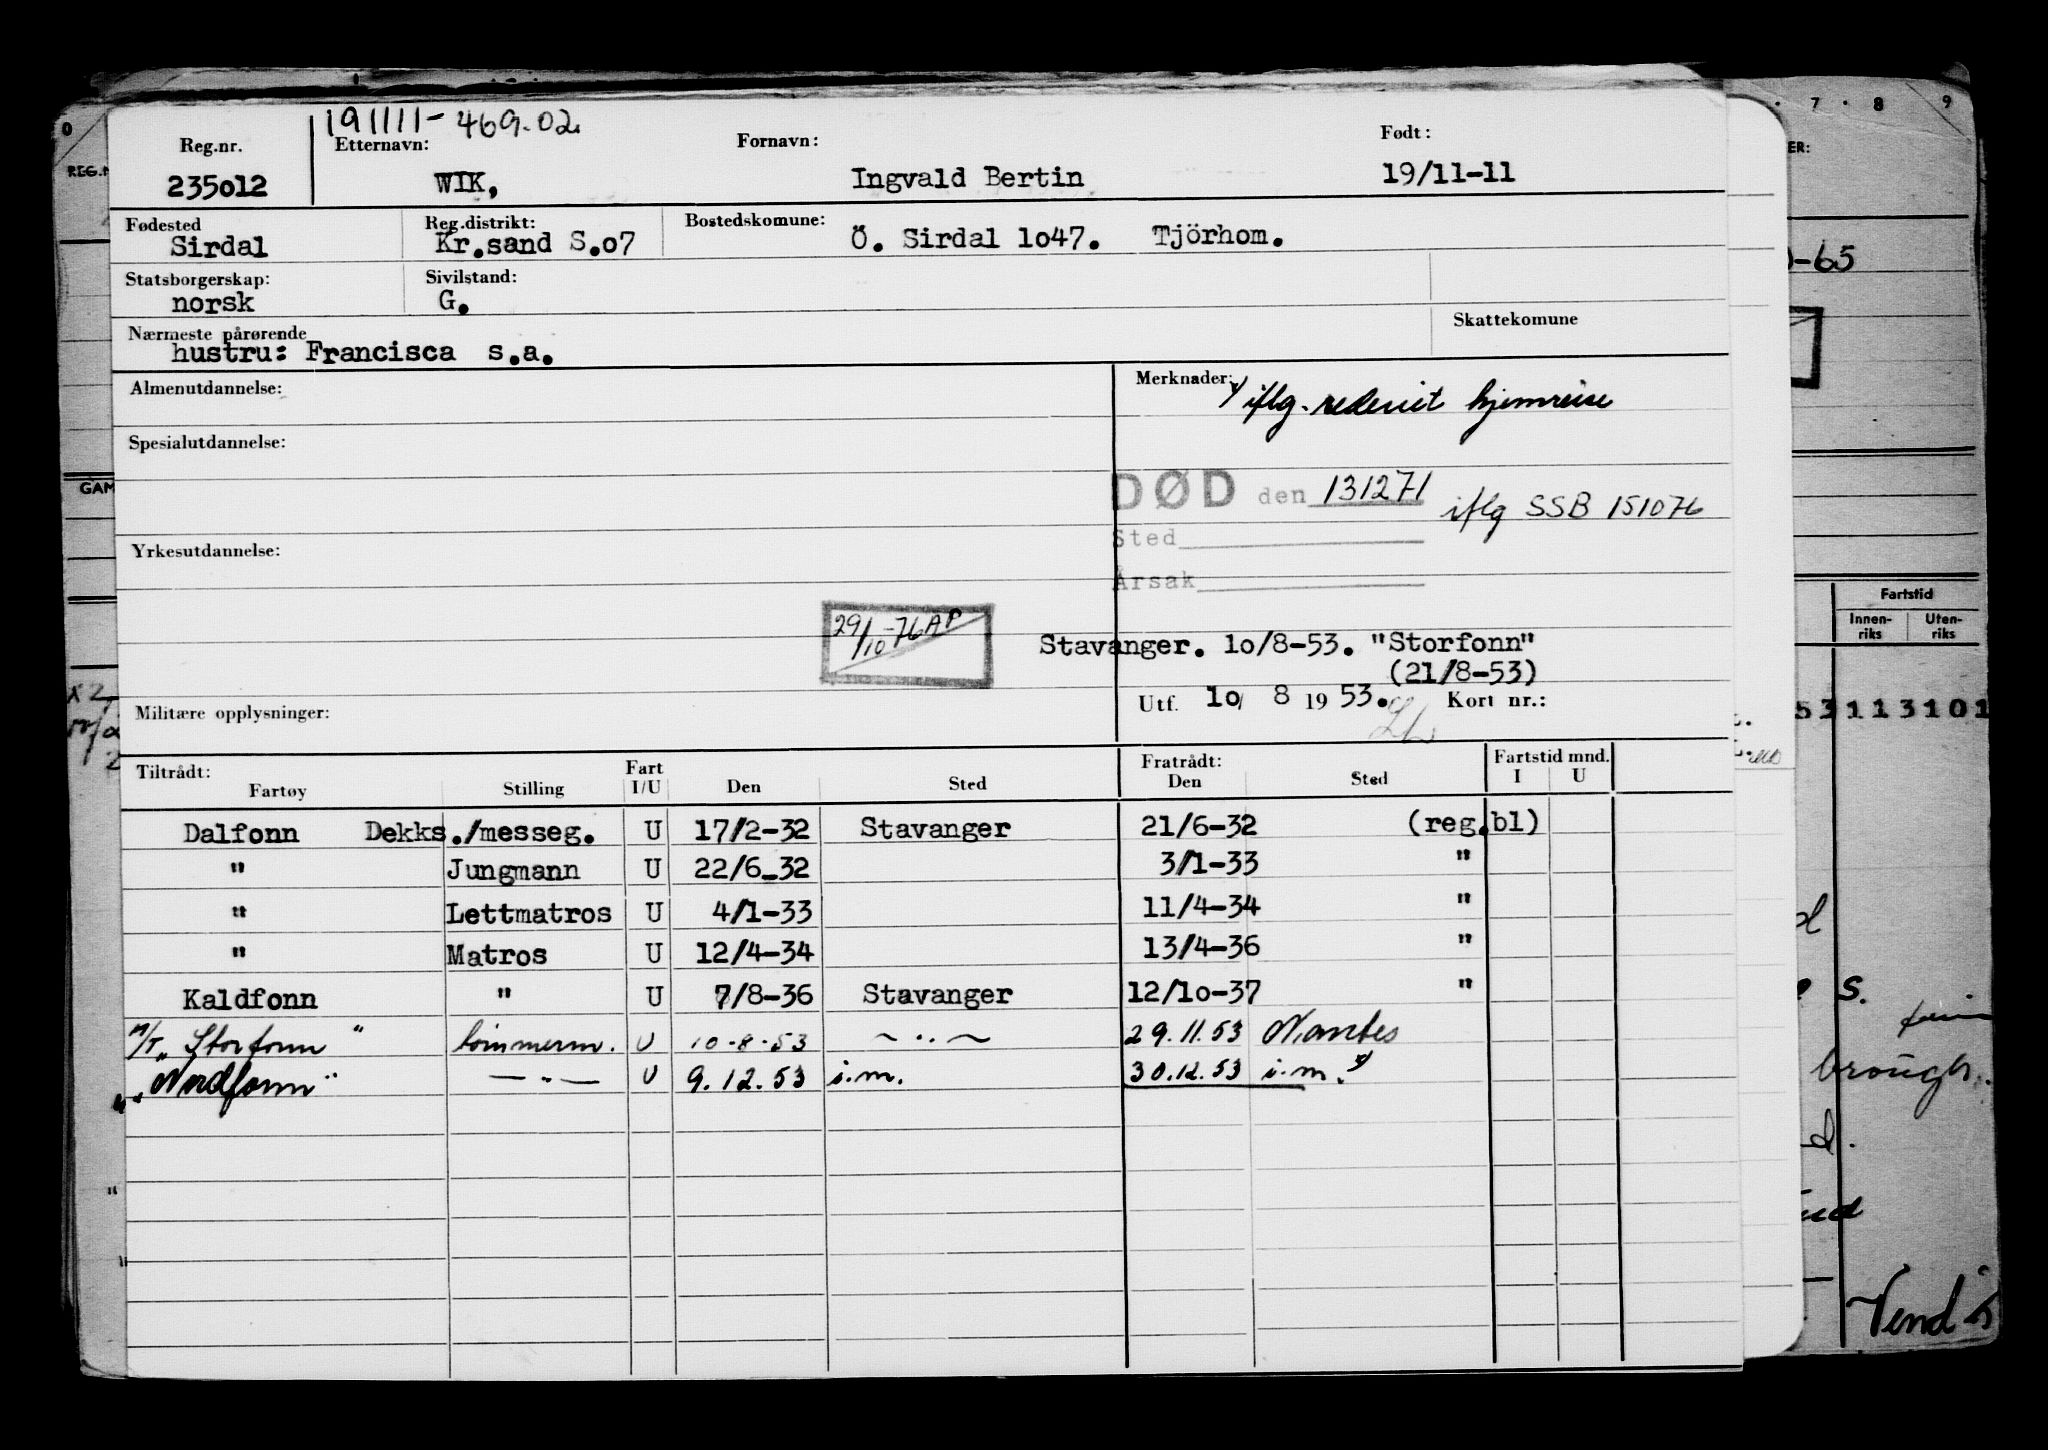 191111-469.02
Reg.nr. Etternavn: Fornavn: Født:
235o12 WIK, Ingvald Bertin 19/11-11
Fødested Reg.distrikt: Bostedskomune:
Sirdal Kr.sand S.o7 Ö. Sirdal 1o47. Tjörhom.
Statsborgerskap: Sivilstand:
norsk G.
Nærmeste pårørende Skattekomune
hustru: Francisca s.a.
Almenutdannelse: Merknader:
x) iflg. rederiet hjemreise
Spesialutdannelse:
DØD den 131271 iflg SSB 151076
Sted
Yrkesutdannelse:
Årsak
29/10-76 AP
Stavanger. 1o/8-53. "Storfonn"
(21/8-53)
Utf. 1o/ 8 1953. Kort nr.:
Militære opplysninger:
Tiltrådt: Fart Fratrådt: Fartstid mnd.
Fartøy Stilling I/U Den Sted Den Sted I U
Dalfonn Dekks./messeg. U 17/2-32 Stavanger 21/6-32 (reg.bl)
" Jungmann U 22/6-32 3/1-33 "
" Lettmatros U 4/1-33 11/4-34 "
" Matros U 12/4-34 13/4-36 "
Kaldfonn " U 7/8-36 Stavanger 12/1o-37 "
M/T "Storfonn" tømmerm. U 10-8-53 -"- 29.11.53 Nantes
" "Nordfonn" -"- U 9.12.53 i.m. 30.12.53 i.m. x)
0
REG.N
GAM
7 · 8 9
ER:
-65
Fartstid
Innen-riks Uten-riks
53 113101
S.
brough.
Vend